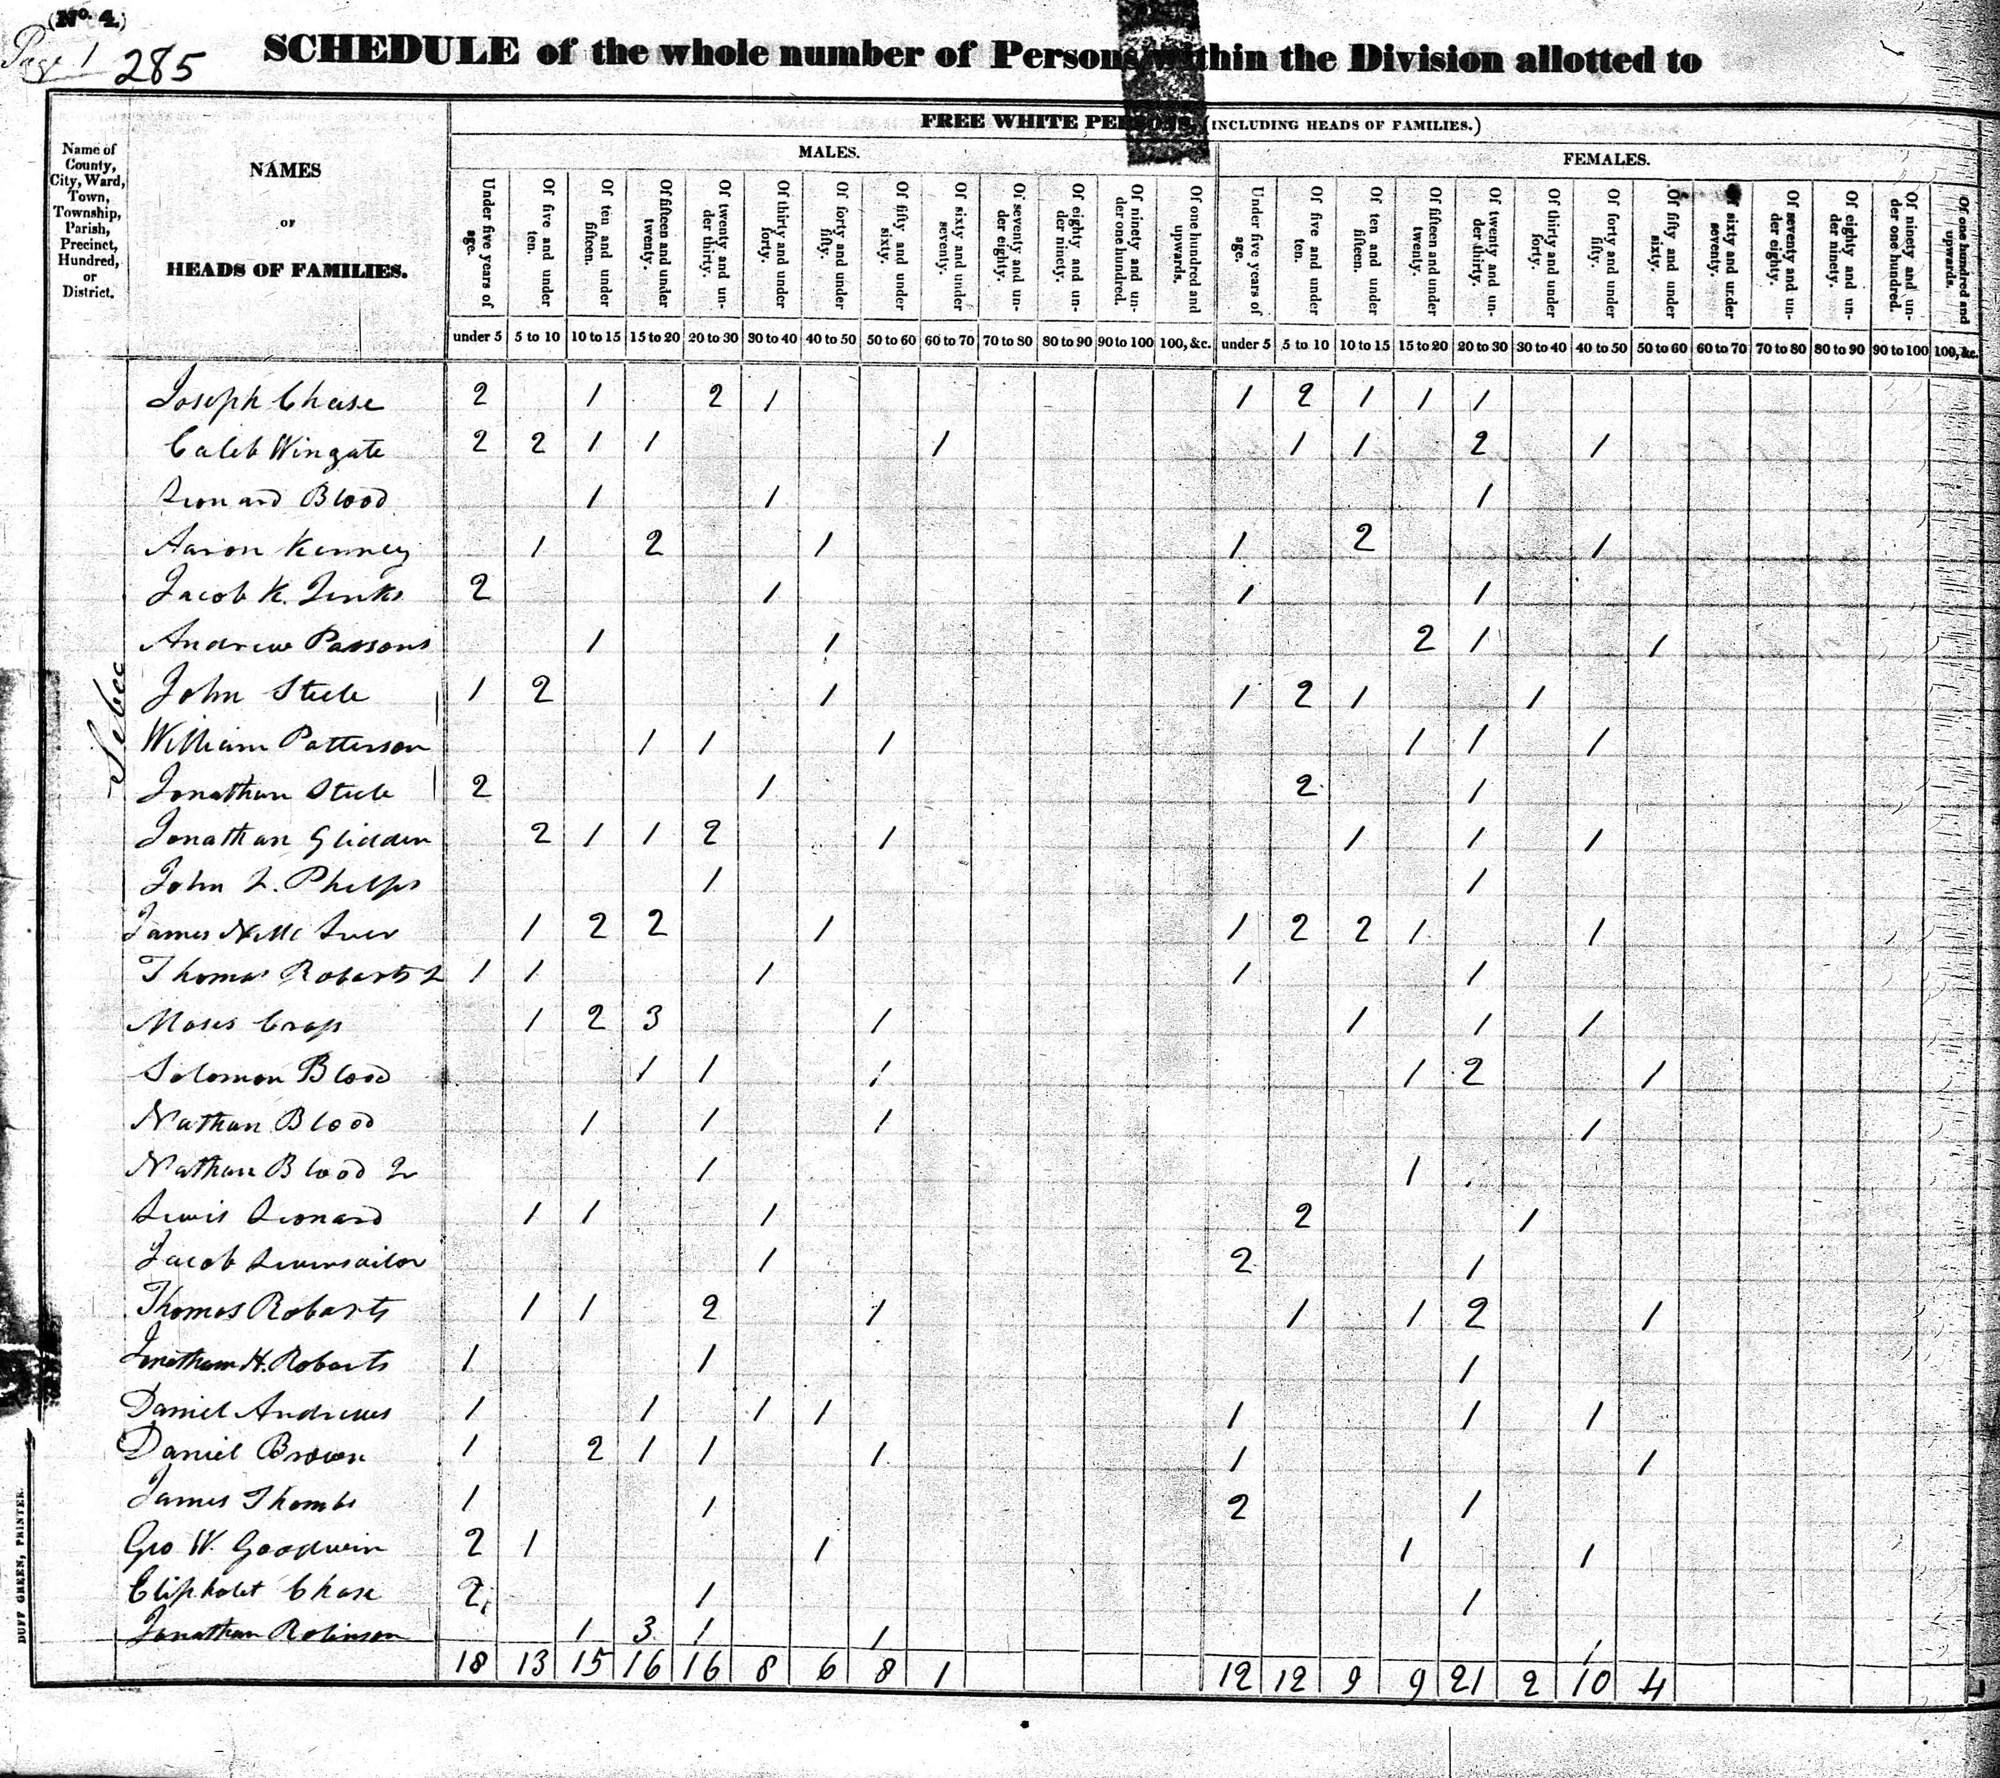 (No. 4.)
Page 1 285
SCHEDULE of the whole number of Persons within the Division allotted to
FREE WHITE PERSONS, (INCLUDING HEADS OF FAMILIES.)
MALES. FEMALES.
Name of County, City, Ward, Town, Township, Parish, Precinct, Hundred, or District.
NAMES
OF
HEADS OF FAMILIES.
Under five years of age. Of five and under ten. Of ten and under fifteen. Of fifteen and under twenty. Of twenty and under thirty. Of thirty and under forty. Of forty and under fifty. Of fifty and under sixty. Of sixty and under seventy. Of seventy and under eighty. Of eighty and under ninety. Of ninety and under one hundred. Of one hundred and upwards. Under five years of age. Of five and under ten. Of ten and under fifteen. Of fifteen and under twenty. Of twenty and under thirty. Of thirty and under forty. Of forty and under fifty. Of fifty and under sixty. Of sixty and under seventy. Of seventy and under eighty. Of eighty and under ninety. Of ninety and under one hundred. Of one hundred and upwards.
under 5 5 to 10 10 to 15 15 to 20 20 to 30 30 to 40 40 to 50 50 to 60 60 to 70 70 to 80 80 to 90 90 to 100 100, &c. under 5 5 to 10 10 to 15 15 to 20 20 to 30 30 to 40 40 to 50 50 to 60 60 to 70 70 to 80 80 to 90 90 to 100 100, &c.
Joseph Chase 2 1 2 1 1 2 1 1 1
Caleb Wingate 2 2 1 1 1 1 1 2 1
Leonard Blood 1 1 1
Aaron Kenney 1 2 1 1 2 1
Jacob K. Jenks 2 1 1 1
Andrew Parsons 1 1 2 1 1
Sebec
John Steele 1 2 1 1 2 1 1
William Patterson 1 1 1 1 1 1
Jonathan Steele 2 1 2 1
Jonathan Glidden 2 1 1 2 1 1 1 1
John L. Phelps 1 1
James 1 2 2 1 1 2 2 1 1
Thomas Robarts 2 1 1 1 1 1
Moses Crass 1 2 3 1 1 1 1
Solomon Blood 1 1 1 1 2 1
Nathan Blood 1 1 1 1
Nathan Blood 2 1 1
Lewis Leonard 1 1 1 2 1
Jacob 1 2 1
Thomas Robarts 1 1 2 1 1 1 2 1
Jonathan H. Robarts 1 1 1
Daniel Andrews 1 1 1 1 1 1 1
Daniel Brown 1 2 1 1 1 1 1
James Thombs 1 1 2 1
Geo W. Goodwin 2 1 1 1 1
Eliphalet Chase 2 1 1
Jonathan Robinson 1 3 1 1 1
18 13 15 16 16 8 6 8 1 12 12 9 9 21 2 10 4
DUFF GREEN, PRINTER.